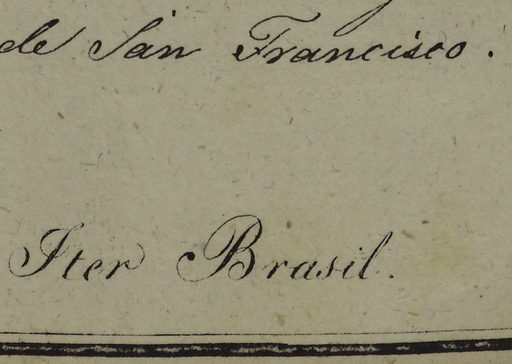 de San Francisco.
Iter Brasil.